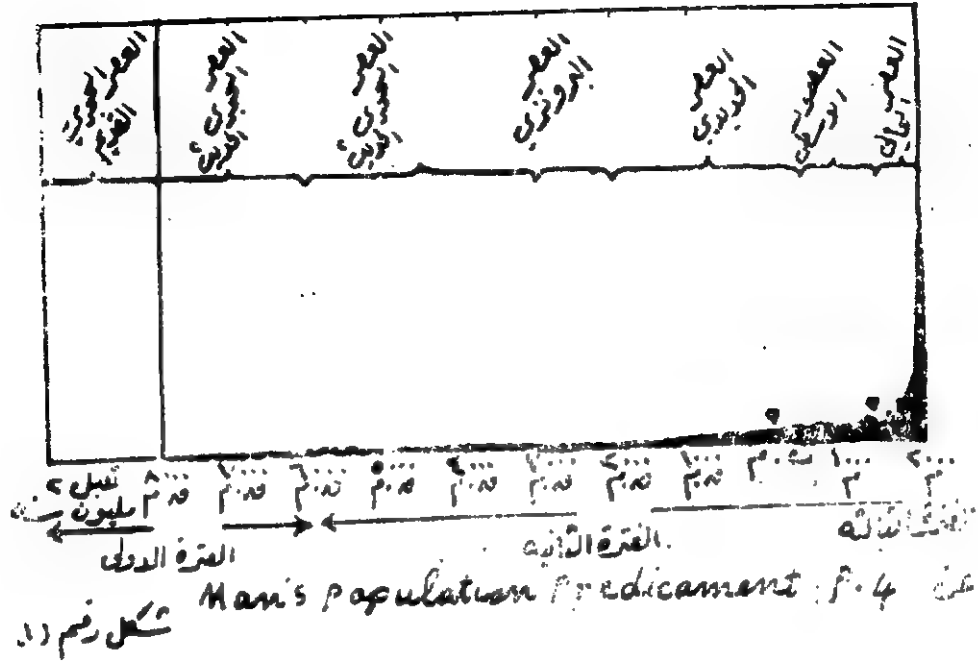 العصر الحجري القديم
العصر الحجري الحديث
العصر الحجري الحديث
العصر البرونزي
العصر الحديدي
العصور الوسطى
العصر الحالي
قبل ٢ مليون سنة
٨٠٠٠ ق.م
٧٠٠٠ ق.م
٦٠٠٠ ق.م
٥٠٠٠ ق.م
٤٠٠٠ ق.م
٣٠٠٠ ق.م
٢٠٠٠ ق.م
١٠٠٠ ق.م
١٠٠٠ م
٢٠٠٠ م
الفترة الاولى
الفترة الثانية
الفترة الثالثة
عن Man's population Predicament. P. 4
شكل رقم (١)